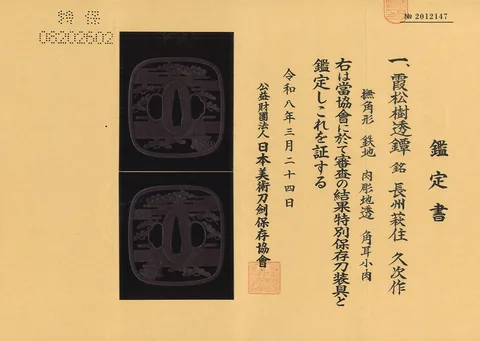 № 2012147
特保
08202602
鑑定書
一、霞松樹透鐔 銘 長州萩住 久次作
撫角形 鉄地 肉彫地透 角耳小肉
右は當協會に於て審査の結果特別保存刀装具と
鑑定しこれを証する
令和八年三月二十四日
公益財團法人 日本美術刀劍保存協會